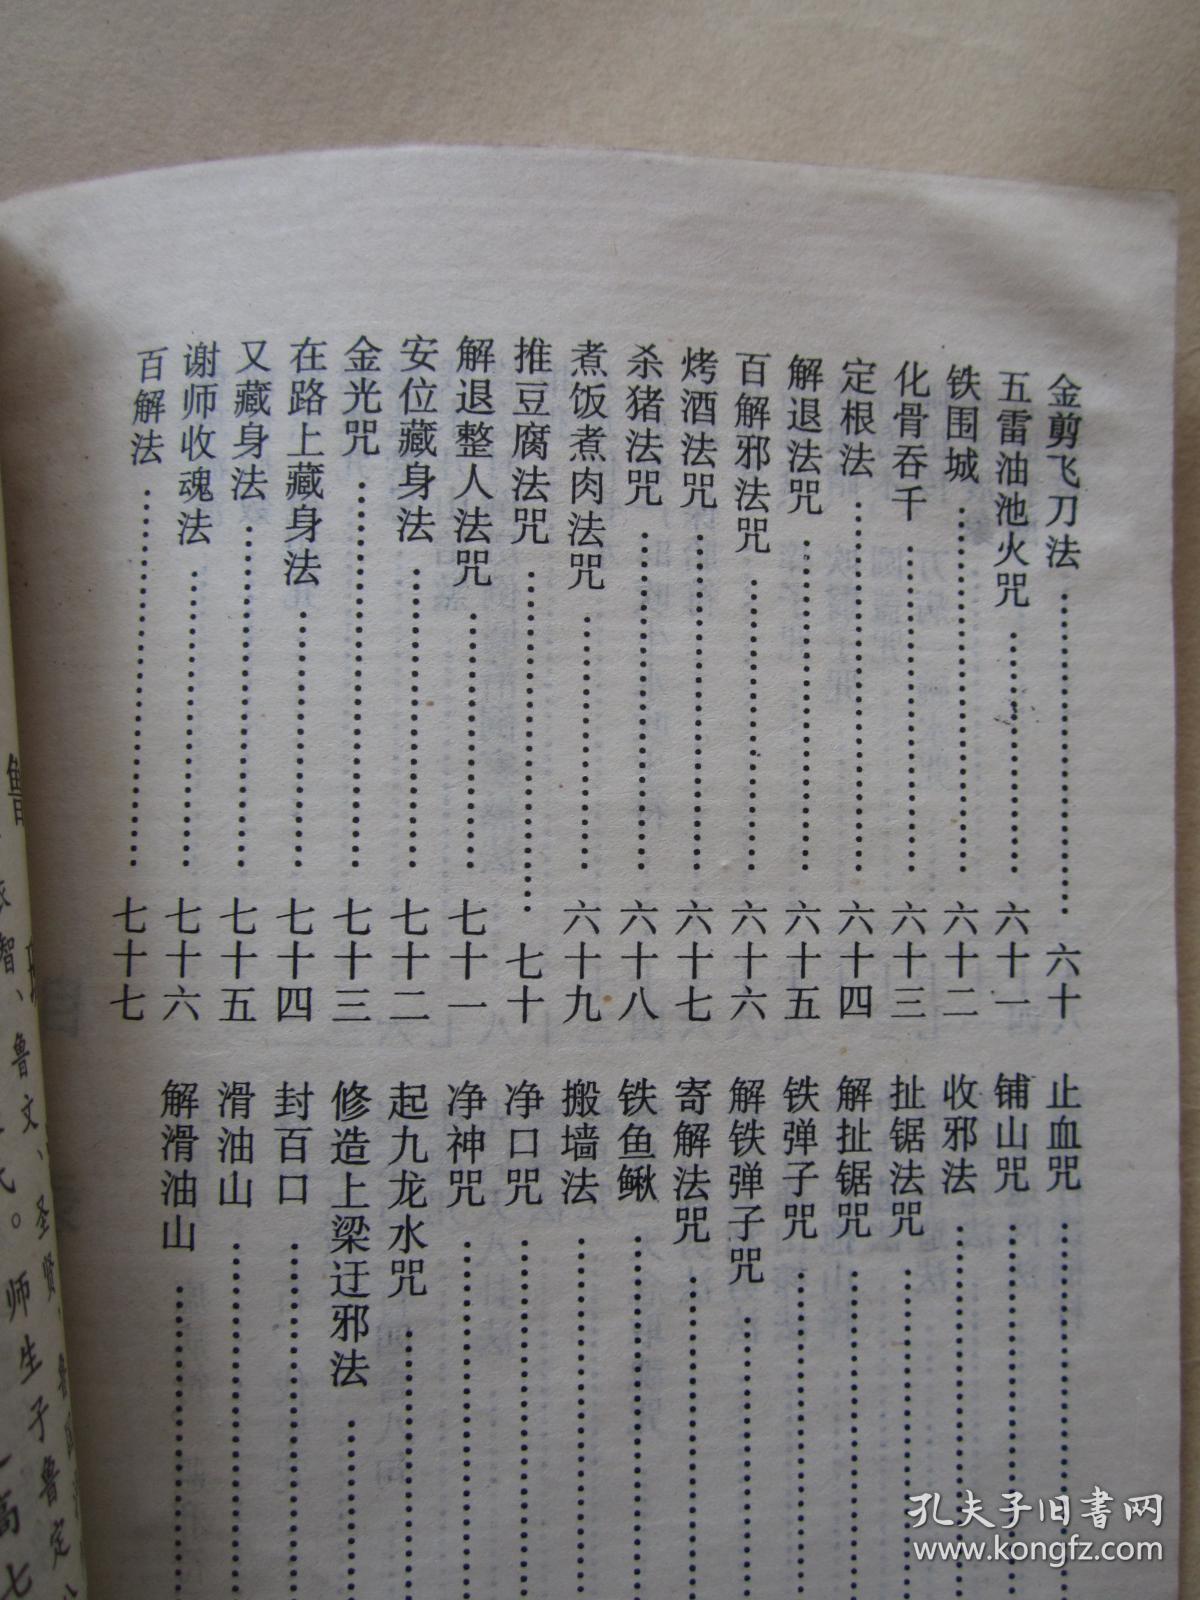 金剪飞刀法……六十
五雷油池火咒……六十一
铁围城……六十二
化骨吞千……六十三
定根法……六十四
解退法咒……六十五
百解邪法咒……六十六
烤酒法咒……六十七
杀猪法咒……六十八
煮饭煮肉法咒……六十九
推豆腐法咒……七十
解退整人法咒……七十一
安位藏身法……七十二
金光咒……七十三
在路上藏身法……七十四
又藏身法……七十五
谢师收魂法……七十六
百解法……七十七
止血咒……
铺山咒……
收邪法……
扯锯法咒……
解扯锯咒……
铁弹子咒……
解铁弹子咒……
寄解法咒……
铁鱼鳅……
搬墙法……
净口咒……
净神咒……
起九龙水咒……
修造上梁迂邪法……
封百口……
滑油山……
解滑油山……
智、鲁文、圣贤、
氏。师生子鲁定
高七
孔夫子旧书网
www.kongfz.com